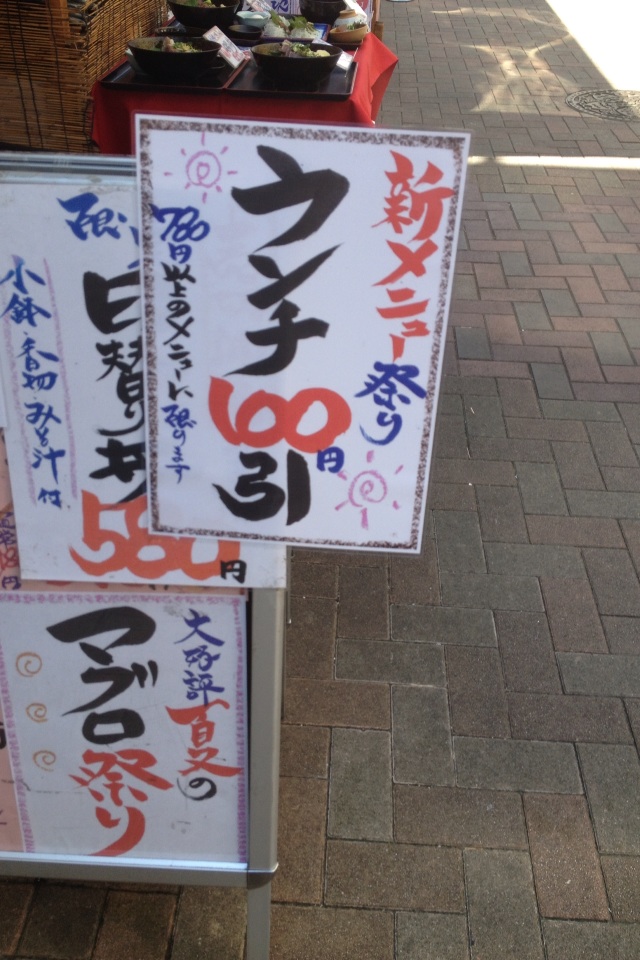 新メニュー祭り
ウンチ
100円
引
780円以上のメニューに限ります
限
日替り
小鉢・香物・みそ汁付
580円
大好評
夏の
マグロ祭り